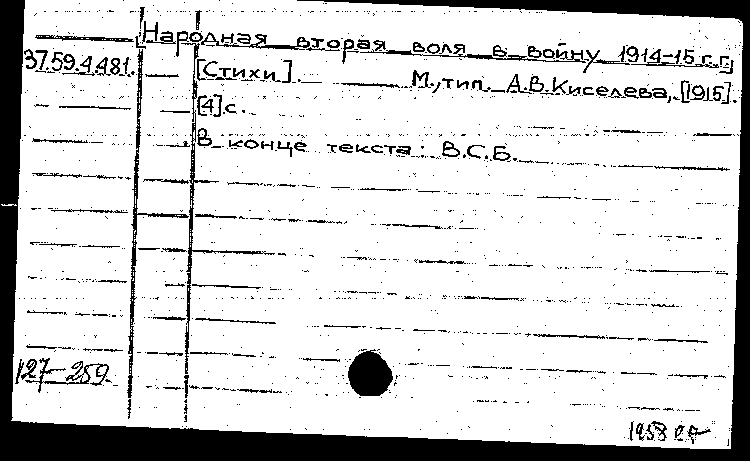 Народная вторая воля в войну 1914-15 г.г.
37.59.4.481. [Стихи]. М., тип. А.В.Киселева, [1915].
[4]с.
В конце текста: В.С.Б.
127-259
1958